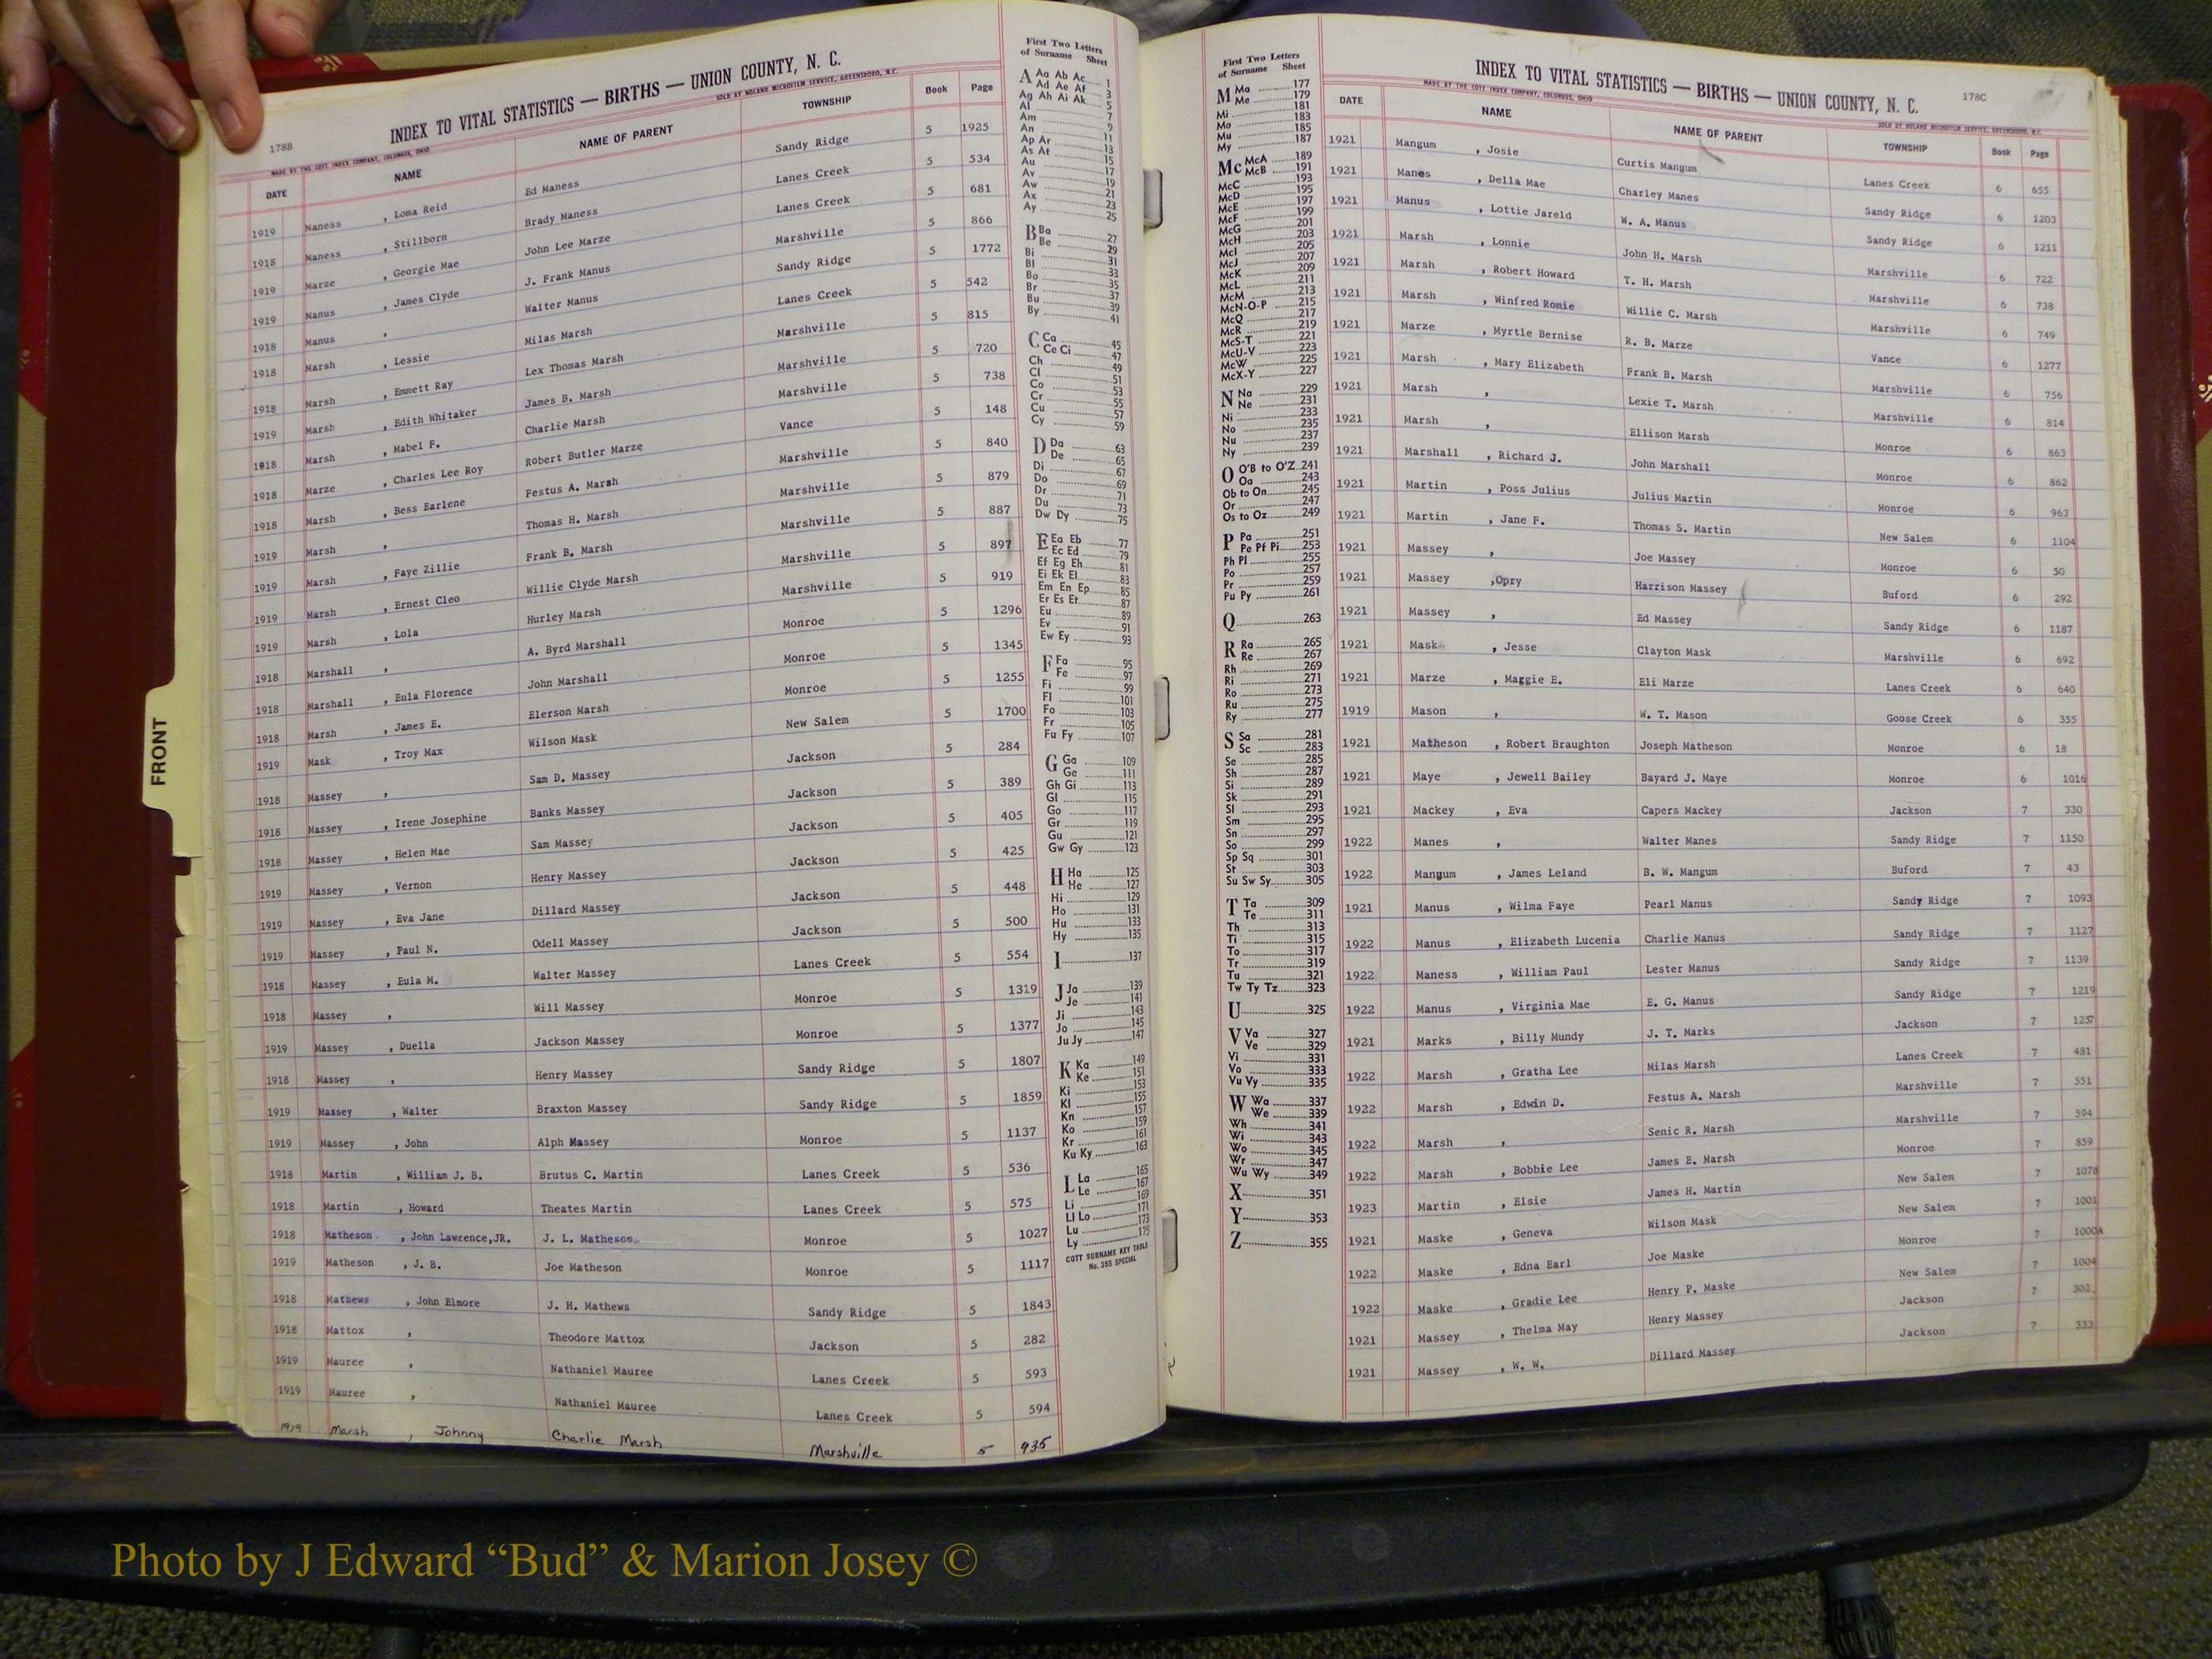 178B
INDEX TO VITAL STATISTICS — BIRTHS — UNION COUNTY, N. C.
MADE BY THE COTT INDEX COMPANY, COLUMBUS, OHIO SOLD BY NOLAND MICROFILM SERVICE, GREENSBORO, N.C.
DATE NAME NAME OF PARENT TOWNSHIP Book Page
1919 Maness , Loma Reid Ed Maness Sandy Ridge 5 1925
1918 Maness , Stillborn Brady Maness Lanes Creek 5 534
1919 Marze , Georgie Mae John Lee Marze Lanes Creek 5 681
1919 Manus , James Clyde J. Frank Manus Marshville 5 866
1918 Manus , Walter Manus Sandy Ridge 5 1772
1918 Marsh , Lessie Milas Marsh Lanes Creek 5 542
1918 Marsh , Emmett Ray Lex Thomas Marsh Marshville 5 815
1919 Marsh , Edith Whitaker James B. Marsh Marshville 5 720
1918 Marsh , Mabel F. Charlie Marsh Marshville 5 738
1918 Marze , Charles Lee Roy Robert Butler Marze Vance 5 148
1918 Marsh , Bess Earlene Festus A. Marsh Marshville 5 840
1919 Marsh , Thomas H. Marsh Marshville 5 879
1919 Marsh , Faye Zillie Frank B. Marsh Marshville 5 887
1919 Marsh , Ernest Cleo Willie Clyde Marsh Marshville 5 897
1919 Marsh , Lola Hurley Marsh Marshville 5 919
1918 Marshall , A. Byrd Marshall Monroe 5 1296
1918 Marshall , Eula Florence John Marshall Monroe 5 1345
1918 Marsh , James E. Elerson Marsh Monroe 5 1255
1919 Mask , Troy Max Wilson Mask New Salem 5 1700
1918 Massey , Sam D. Massey Jackson 5 284
1918 Massey , Irene Josephine Banks Massey Jackson 5 389
1918 Massey , Helen Mae Sam Massey Jackson 5 405
1919 Massey , Vernon Henry Massey Jackson 5 425
1919 Massey , Eva Jane Dillard Massey Jackson 5 448
1919 Massey , Paul N. Odell Massey Jackson 5 500
1918 Massey , Eula M. Walter Massey Lanes Creek 5 554
1918 Massey , Will Massey Monroe 5 1319
1919 Massey , Duella Jackson Massey Monroe 5 1377
1918 Massey , Henry Massey Sandy Ridge 5 1807
1919 Massey , Walter Braxton Massey Sandy Ridge 5 1859
1919 Massey , John Alph Massey Monroe 5 1137
1918 Martin , William J. B. Brutus C. Martin Lanes Creek 5 536
1918 Martin , Howard Theates Martin Lanes Creek 5 575
1918 Matheson , John Lawrence,JR. J. L. Matheson Monroe 5 1027
1919 Matheson , J. B. Joe Matheson Monroe 5 1117
1918 Mathews , John Elmore J. H. Mathews Sandy Ridge 5 1843
1918 Mattox , Theodore Mattox Jackson 5 282
1919 Mauree , Nathaniel Mauree Lanes Creek 5 593
1919 Mauree , Nathaniel Mauree Lanes Creek 5 594
1919 Marsh , Johnny Charlie Marsh Marshville 5 935
First Two Letters
of Surname Sheet
A Aa Ab Ac 1
Ad Ae Af 3
Ag Ah Ai Ak 5
Al 7
Am 9
An 11
Ap Ar 13
As At 15
Au 17
Av 19
Aw 21
Ax 23
Ay 25
B Ba 27
Be 29
Bi 31
Bl 33
Bo 35
Br 37
Bu 39
By 41
C Ca 45
Ce Ci 47
Ch 49
Cl 51
Co 53
Cr 55
Cu 57
Cy 59
D Da 63
De 65
Di 67
Do 69
Dr 71
Du 73
Dw Dy 75
E Ea Eb 77
Ec Ed 79
Ef Eg Eh 81
Ei Ek El 83
Em En Ep 85
Er Es Et 87
Eu 89
Ev 91
Ew Ey 93
F Fa 95
Fe 97
Fi 99
Fl 101
Fo 103
Fr 105
Fu Fy 107
G Ga 109
Ge 111
Gh Gi 113
Gl 115
Go 117
Gr 119
Gu 121
Gw Gy 123
H Ha 125
He 127
Hi 129
Ho 131
Hu 133
Hy 135
I 137
J Ja 139
Je 141
Ji 143
Jo 145
Ju Jy 147
K Ka 149
Ke 151
Ki 153
Kl 155
Kn 157
Ko 159
Kr 161
Ku Ky 163
L La 165
Le 167
Li 169
Ll Lo 171
Lu 173
Ly 175
COTT SURNAME KEY TABLE
No. 355 SPECIAL
FRONT
First Two Letters
of Surname Sheet
M Ma 177
Me 179
Mi 181
Mo 183
Mu 185
My 187
Mc McA 189
McB 191
McC 193
McD 195
McE 197
McF 199
McG 201
McH 203
McI 205
McJ 207
McK 209
McL 211
McM 213
McN-O-P 215
McQ 217
McR 219
McS-T 221
McU-V 223
McW 225
McX-Y 227
N Na 229
Ne 231
Ni 233
No 235
Nu 237
Ny 239
O O'B to O'Z 241
Oa 243
Ob to On 245
Or 247
Os to Oz 249
P Pa 251
Pe Pf Pi 253
Ph Pl 255
Po 257
Pr 259
Pu Py 261
Q 263
R Ra 265
Re 267
Rh 269
Ri 271
Ro 273
Ru 275
Ry 277
S Sa 281
Sc 283
Se 285
Sh 287
Si 289
Sk 291
Sl 293
Sm 295
Sn 297
So 299
Sp Sq 301
St 303
Su Sw Sy 305
T Ta 309
Te 311
Th 313
Ti 315
To 317
Tr 319
Tu 321
Tw Ty Tz 323
U 325
V Va 327
Ve 329
Vi 331
Vo 333
Vu Vy 335
W Wa 337
We 339
Wh 341
Wi 343
Wo 345
Wr 347
Wu Wy 349
X 351
Y 353
Z 355
INDEX TO VITAL STATISTICS — BIRTHS — UNION COUNTY, N. C. 178C
MADE BY THE COTT INDEX COMPANY, COLUMBUS, OHIO SOLD BY NOLAND MICROFILM SERVICE, GREENSBORO, N.C.
DATE NAME NAME OF PARENT TOWNSHIP Book Page
1921 Mangum , Josie Curtis Mangum Lanes Creek 6 655
1921 Manes , Della Mae Charley Manes Sandy Ridge 6 1203
1921 Manus , Lottie Jareld W. A. Manus Sandy Ridge 6 1211
1921 Marsh , Lonnie John H. Marsh Marshville 6 722
1921 Marsh , Robert Howard T. H. Marsh Marshville 6 738
1921 Marsh , Winfred Romie Willie C. Marsh Marshville 6 749
1921 Marze , Myrtle Bernise R. B. Marze Vance 6 1277
1921 Marsh , Mary Elizabeth Frank B. Marsh Marshville 6 756
1921 Marsh , Lexie T. Marsh Marshville 6 814
1921 Marsh , Ellison Marsh Monroe 6 863
1921 Marshall , Richard J. John Marshall Monroe 6 862
1921 Martin , Poss Julius Julius Martin Monroe 6 963
1921 Martin , Jane F. Thomas S. Martin New Salem 6 1104
1921 Massey , Joe Massey Monroe 6 50
1921 Massey ,Opry Harrison Massey Buford 6 292
1921 Massey , Ed Massey Sandy Ridge 6 1187
1921 Mask , Jesse Clayton Mask Marshville 6 692
1921 Marze , Maggie E. Eli Marze Lanes Creek 6 640
1919 Mason , W. T. Mason Goose Creek 6 355
1921 Matheson , Robert Braughton Joseph Matheson Monroe 6 18
1921 Maye , Jewell Bailey Bayard J. Maye Monroe 6 1016
1921 Mackey , Eva Capers Mackey Jackson 7 330
1922 Manes , Walter Manes Sandy Ridge 7 1150
1922 Mangum , James Leland B. W. Mangum Buford 7 43
1921 Manus , Wilma Faye Pearl Manus Sandy Ridge 7 1093
1922 Manus , Elizabeth Lucenia Charlie Manus Sandy Ridge 7 1127
1922 Maness , William Paul Lester Manus Sandy Ridge 7 1139
1922 Manus , Virginia Mae E. G. Manus Sandy Ridge 7 1219
1921 Marks , Billy Mundy J. T. Marks Jackson 7 1257
1922 Marsh , Gratha Lee Milas Marsh Lanes Creek 7 481
1922 Marsh , Edwin D. Festus A. Marsh Marshville 7 551
1922 Marsh , Senic R. Marsh Marshville 7 594
1922 Marsh , Bobbie Lee James E. Marsh Monroe 7 859
1923 Martin , Elsie James H. Martin New Salem 7 1078
1921 Maske , Geneva Wilson Mask New Salem 7 1001
1922 Maske , Edna Earl Joe Maske Monroe 7 1000A
1922 Maske , Gradie Lee Henry P. Maske New Salem 7 1004
1921 Massey , Thelma May Henry Massey Jackson 7 302
1921 Massey , W. W. Dillard Massey Jackson 7 333
Photo by J Edward “Bud” & Marion Josey ©